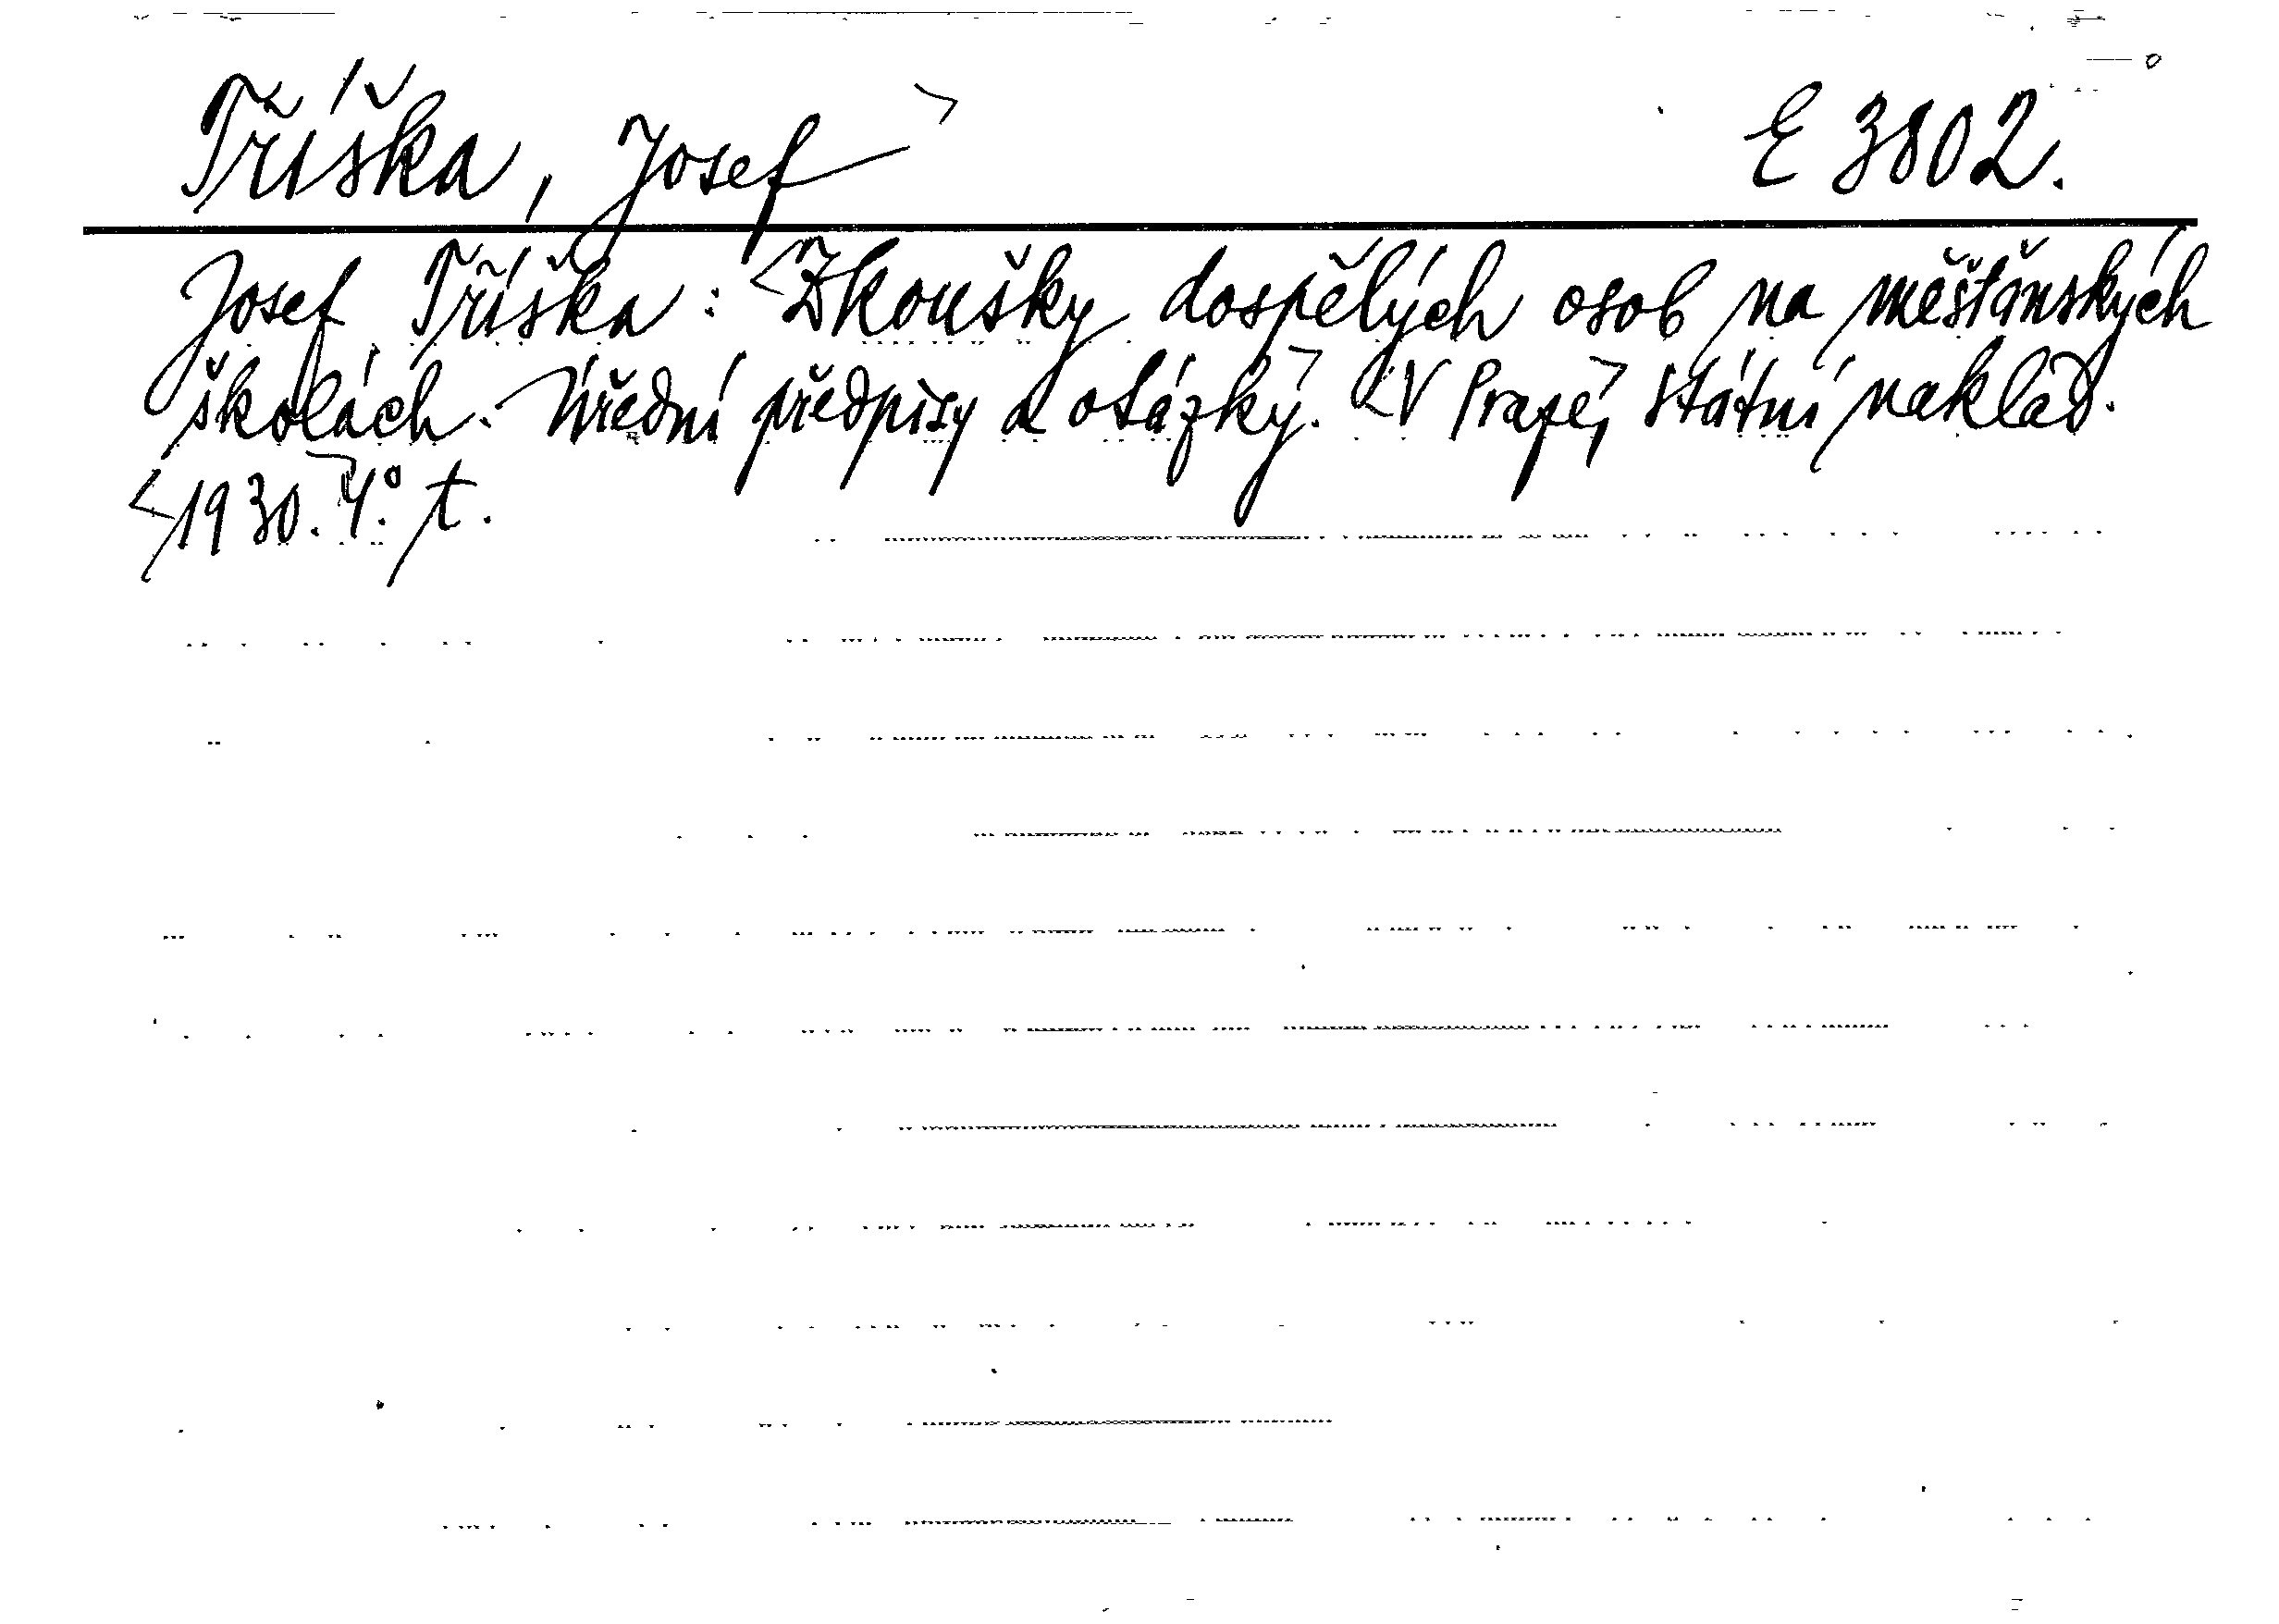 Tříška, Josef > E 3802.
Josef Tříška: <Zkoušky dospělých osob na měšťanských
školách. Úřední předpisy a otázky.> <V Praze,> Státní naklad.
<1930.> 4.° t.